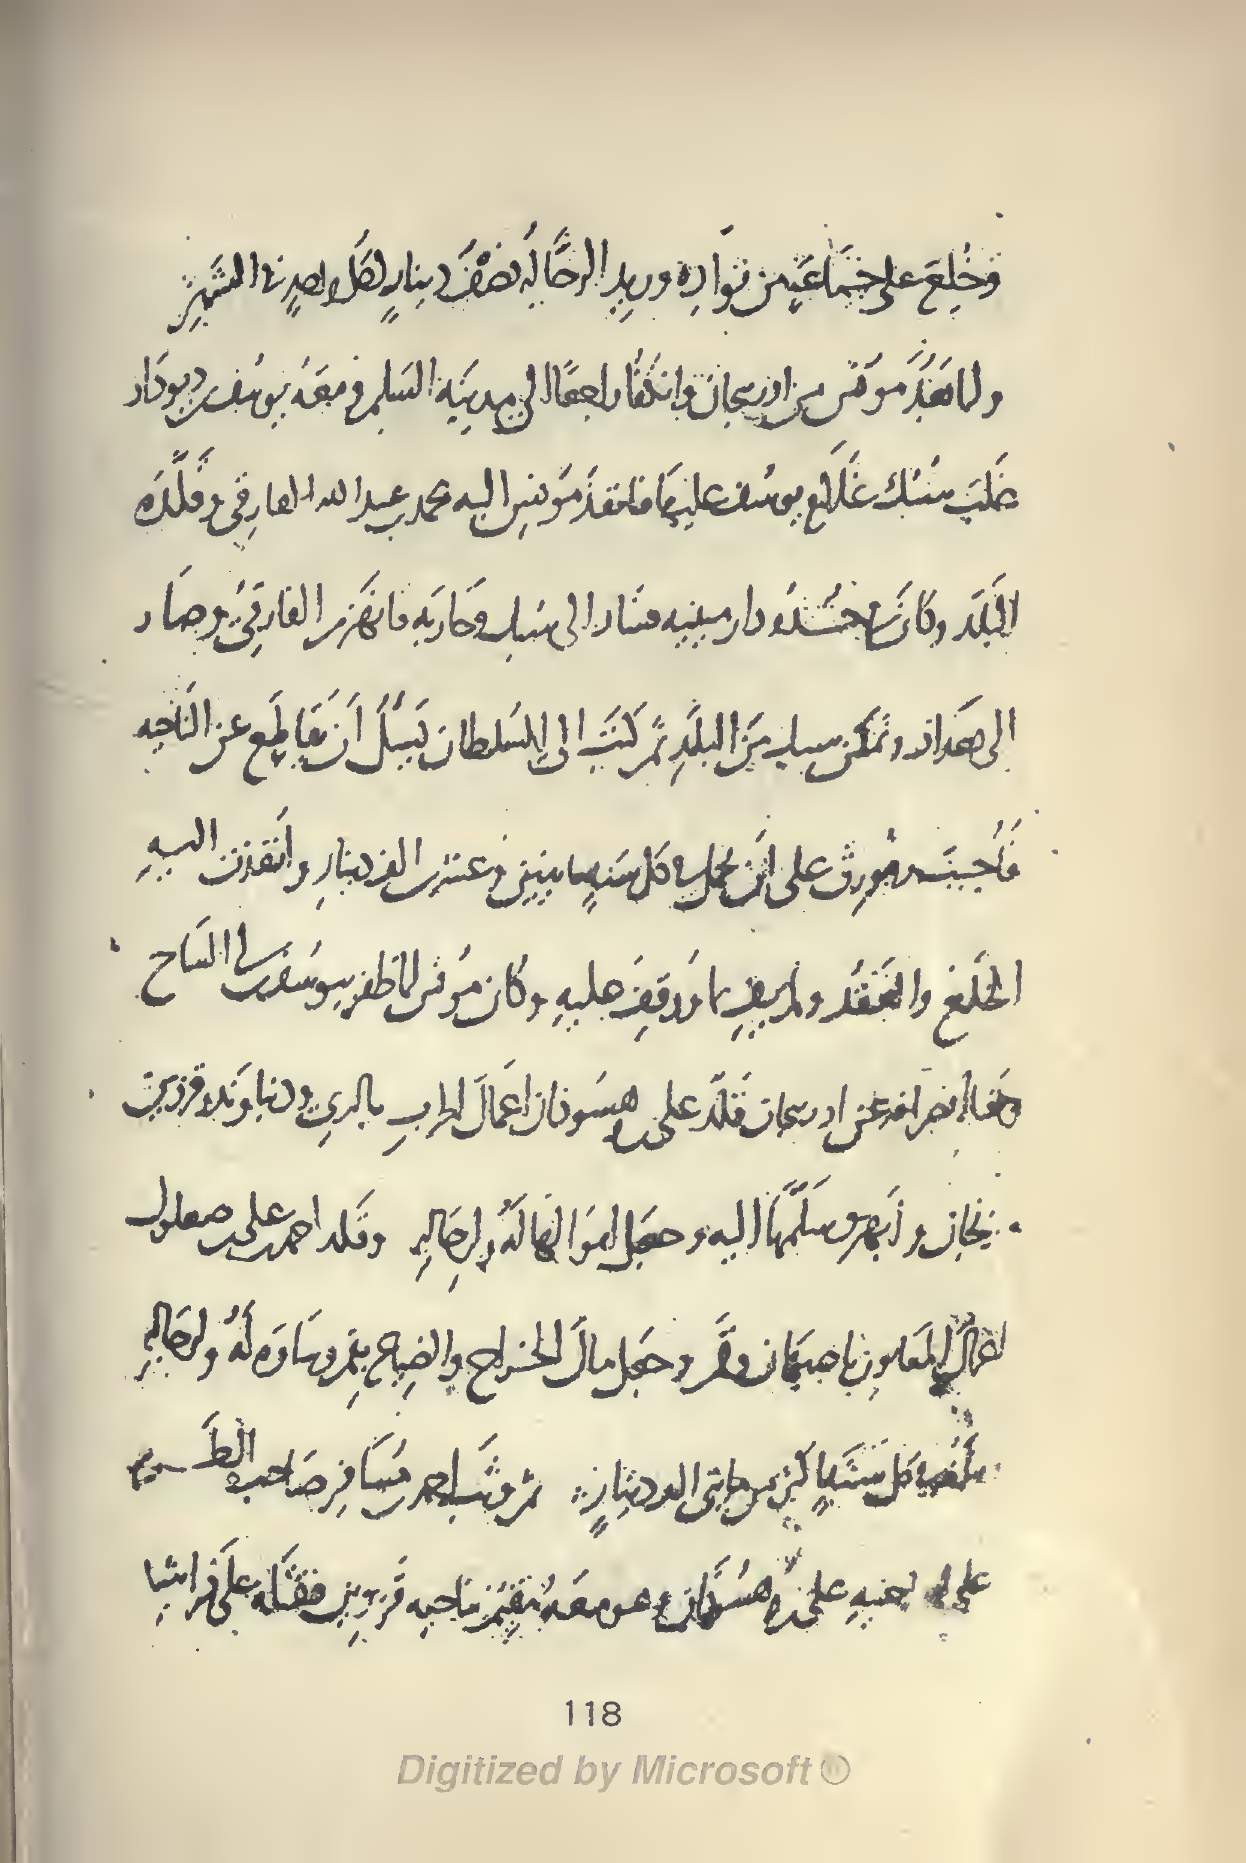 وخُلِعَ على جَمَاعَةٍ من قوّاده وزيد الرجّالة نصْفُ دينارٍ لكل واحدٍ في الشهر
ولما بَعُدَ مونس من اذربيجان وانكفأ راجعًا الى مدينة السلم ومعه يوسُف بن ديوداد
غلبَ سُبُك غلام يوسُف عليها فانفذ مونس اليه محمد بن عبيد الله الفارقي وقلّده
البلد وكان جُنده بارمينيه فسار الى سبك وحاربه فانهزم الفارقي وصار
الى بغداد وتمكن سبك من البلد ثم كتب الى السلطان يسل أن يقاطع عن الناحيه
فأُجيب وفُورق على ان يحمل في كل سنةٍ مايتين وعشرين الف دينارٍ وأنفذت اليهِ
الخلع والعقد ولم يفِ بما ووقِف عليهِ وكان مونس لما ظفر بيوسف بن ابي الساج
وقبل انصرافه عن اذربيجان قلّد على بن وهسوذان اعمال الحرب بالري ودنباوند وقزوين
وزنجان وأبهر وسلّمها اليه وجعل اموالها له ولرجاله وقلد احمد بن على صعلوك
اعمال المعاون باصبهان وقم وجعل مال الخراج والضياع بقم وساوه له ولرجاله
مبلغه كل سنةٍ اكثر من مايتي الف دينارٍ ثم وثب احمد بن مُسافر صاحب الطرم
على ابن اخيه على بن وهسوذان وهو معه مقيم بناحيه قزوين فقتله على فراشه
118
Digitized by Microsoft ®